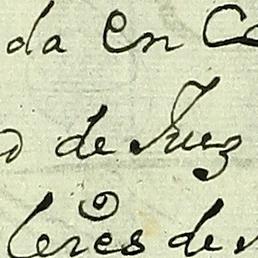 da en Co
o de Juez
leres de